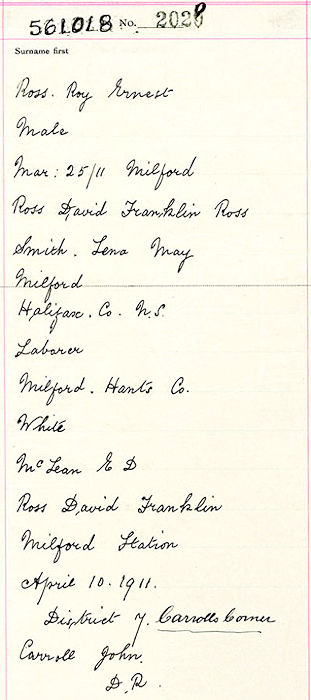 561018 No. 2028
Surname first
Ross. Roy Ernest
Male
Mar: 25/11 Milford
Ross David Franklin Ross
Smith. Lena May
Milford
Halifax. Co. N.S.
Laborer
Milford. Hants Co.
White
McLean E D
Ross David Franklin
Milford Station
April 10. 1911.
District 7. Carrolls Corner
Carroll John.
D.R.